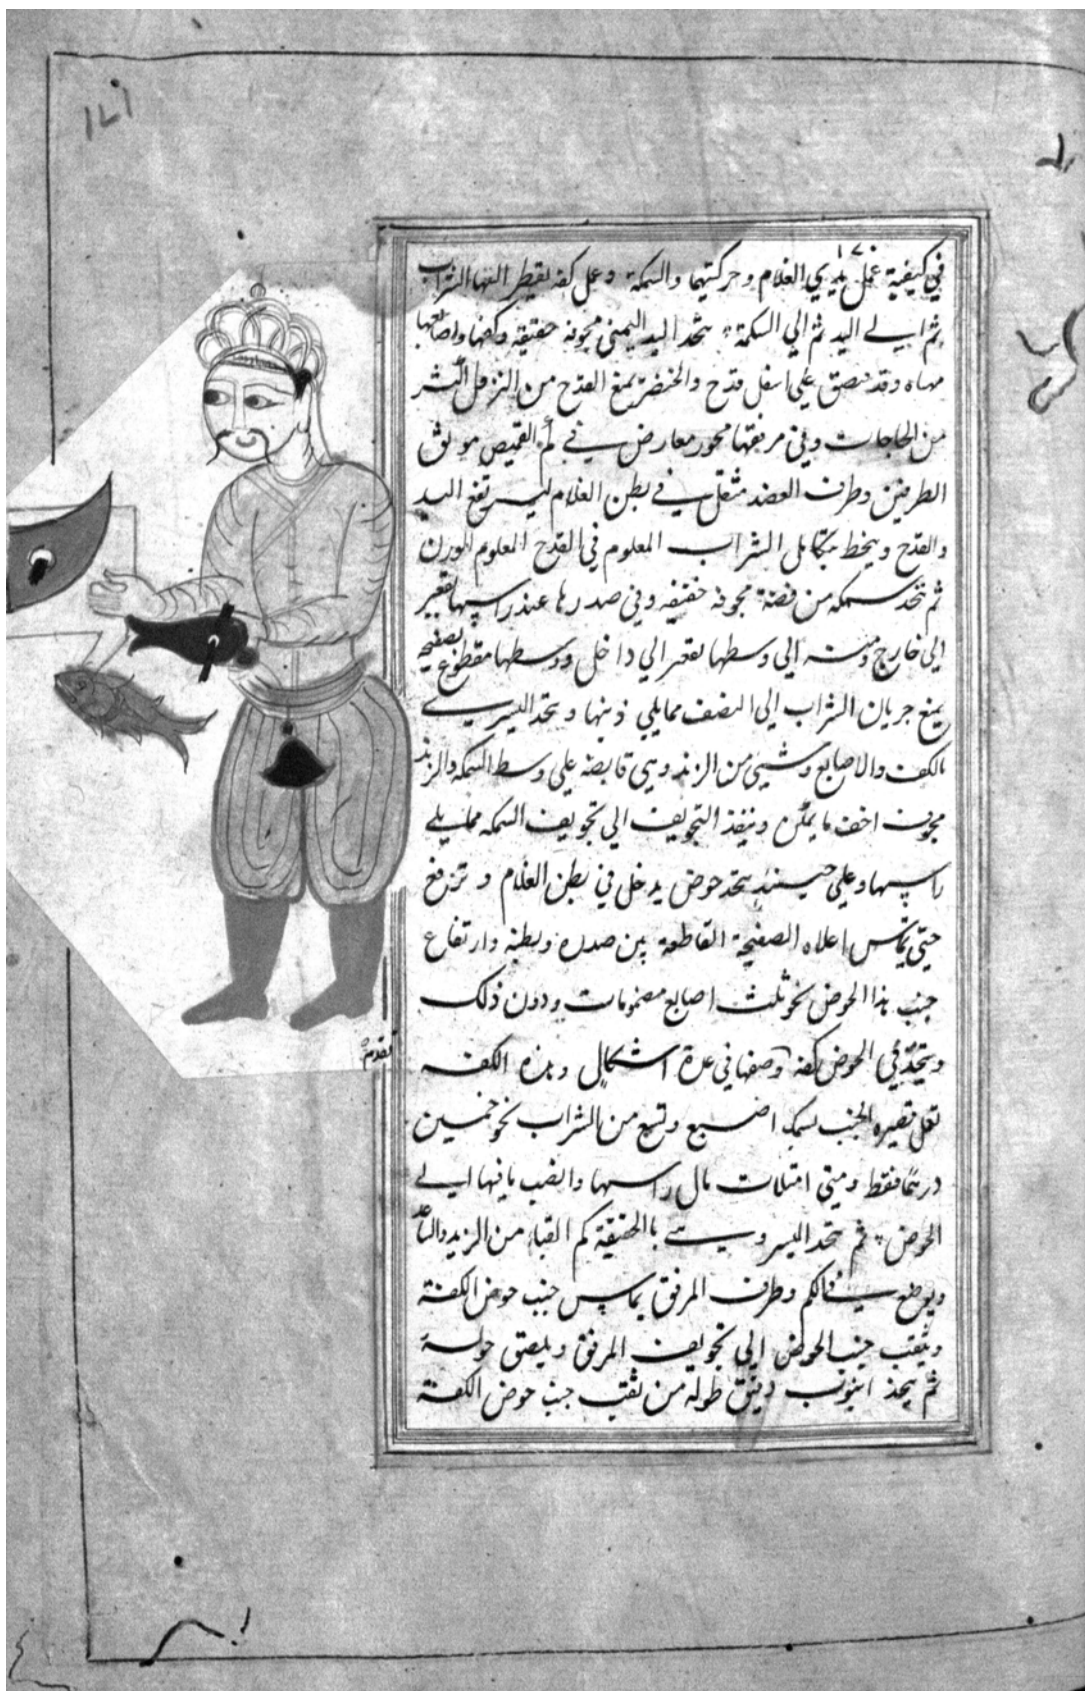 ١٧١
١٧٠
في كيفية عمل يدي الغلام وحركتيهما والسمكة وعمل كفه يقطر اليها الشراب
ثم الي اليد ثم الي السمكة يتخذ اليد اليمني مجوفة خفيفة وكفها واصابعها
من الحاجات وفي مرفقها محور معارض في كم القميص موثق
الطرفين وطرف العضد مثقل في بطن الغلام ليرتفع اليد
والقدح وينحط بتكامل الشراب المعلوم في القدح المعلوم الوزن
ثم يتخذ سمكه من فضة مجوفه خفيفه وفي صدرها عند راسها تقعير
الي خارج ومنه الي وسطها تقعير الي داخل ووسطها مقطوع بصفيحه
يمنع جريان الشراب الي النصف مما يلي ذنبها ويتخذ اليسري
الكف والاصابع وشيئ من الزند وهي قابضه علي وسط السمكه والزند
مجوف اخف ما يمكن وينفذ التجويف الي تجويف السمكه مما يلي
راسها وعلي حينئذ يتخذ حوض يدخل في بطن الغلام وترفع
حتي يماس اعلاه الصفيحة القاطعة بين صدره وبطنه وارتفاع
جنب هذا الحوض نحو ثلث اصابع مضمومات ودون ذلك
ويتخذ في الحوض كفه وصفها في عدة اشكال وهذه الكفه
تعمل قصيره الجنب بسمك اصبع وتسع من الشراب نحو خمسين
درهما فقط ومتي امتلات مال راسها وانصب ما فيها الي
الحوض ثم يتخذ اليسري وهي بالحقيقة كم القباء من الزند والساعد
ويوضع في الكم وطرف المرفق يماس جنب حوض الكفة
ويثقب جنب الحوض الي تجويف المرفق ويلصق حوله
ثم يتخذ انبوب دقيق طوله من ثقب جنب حوض الكفة